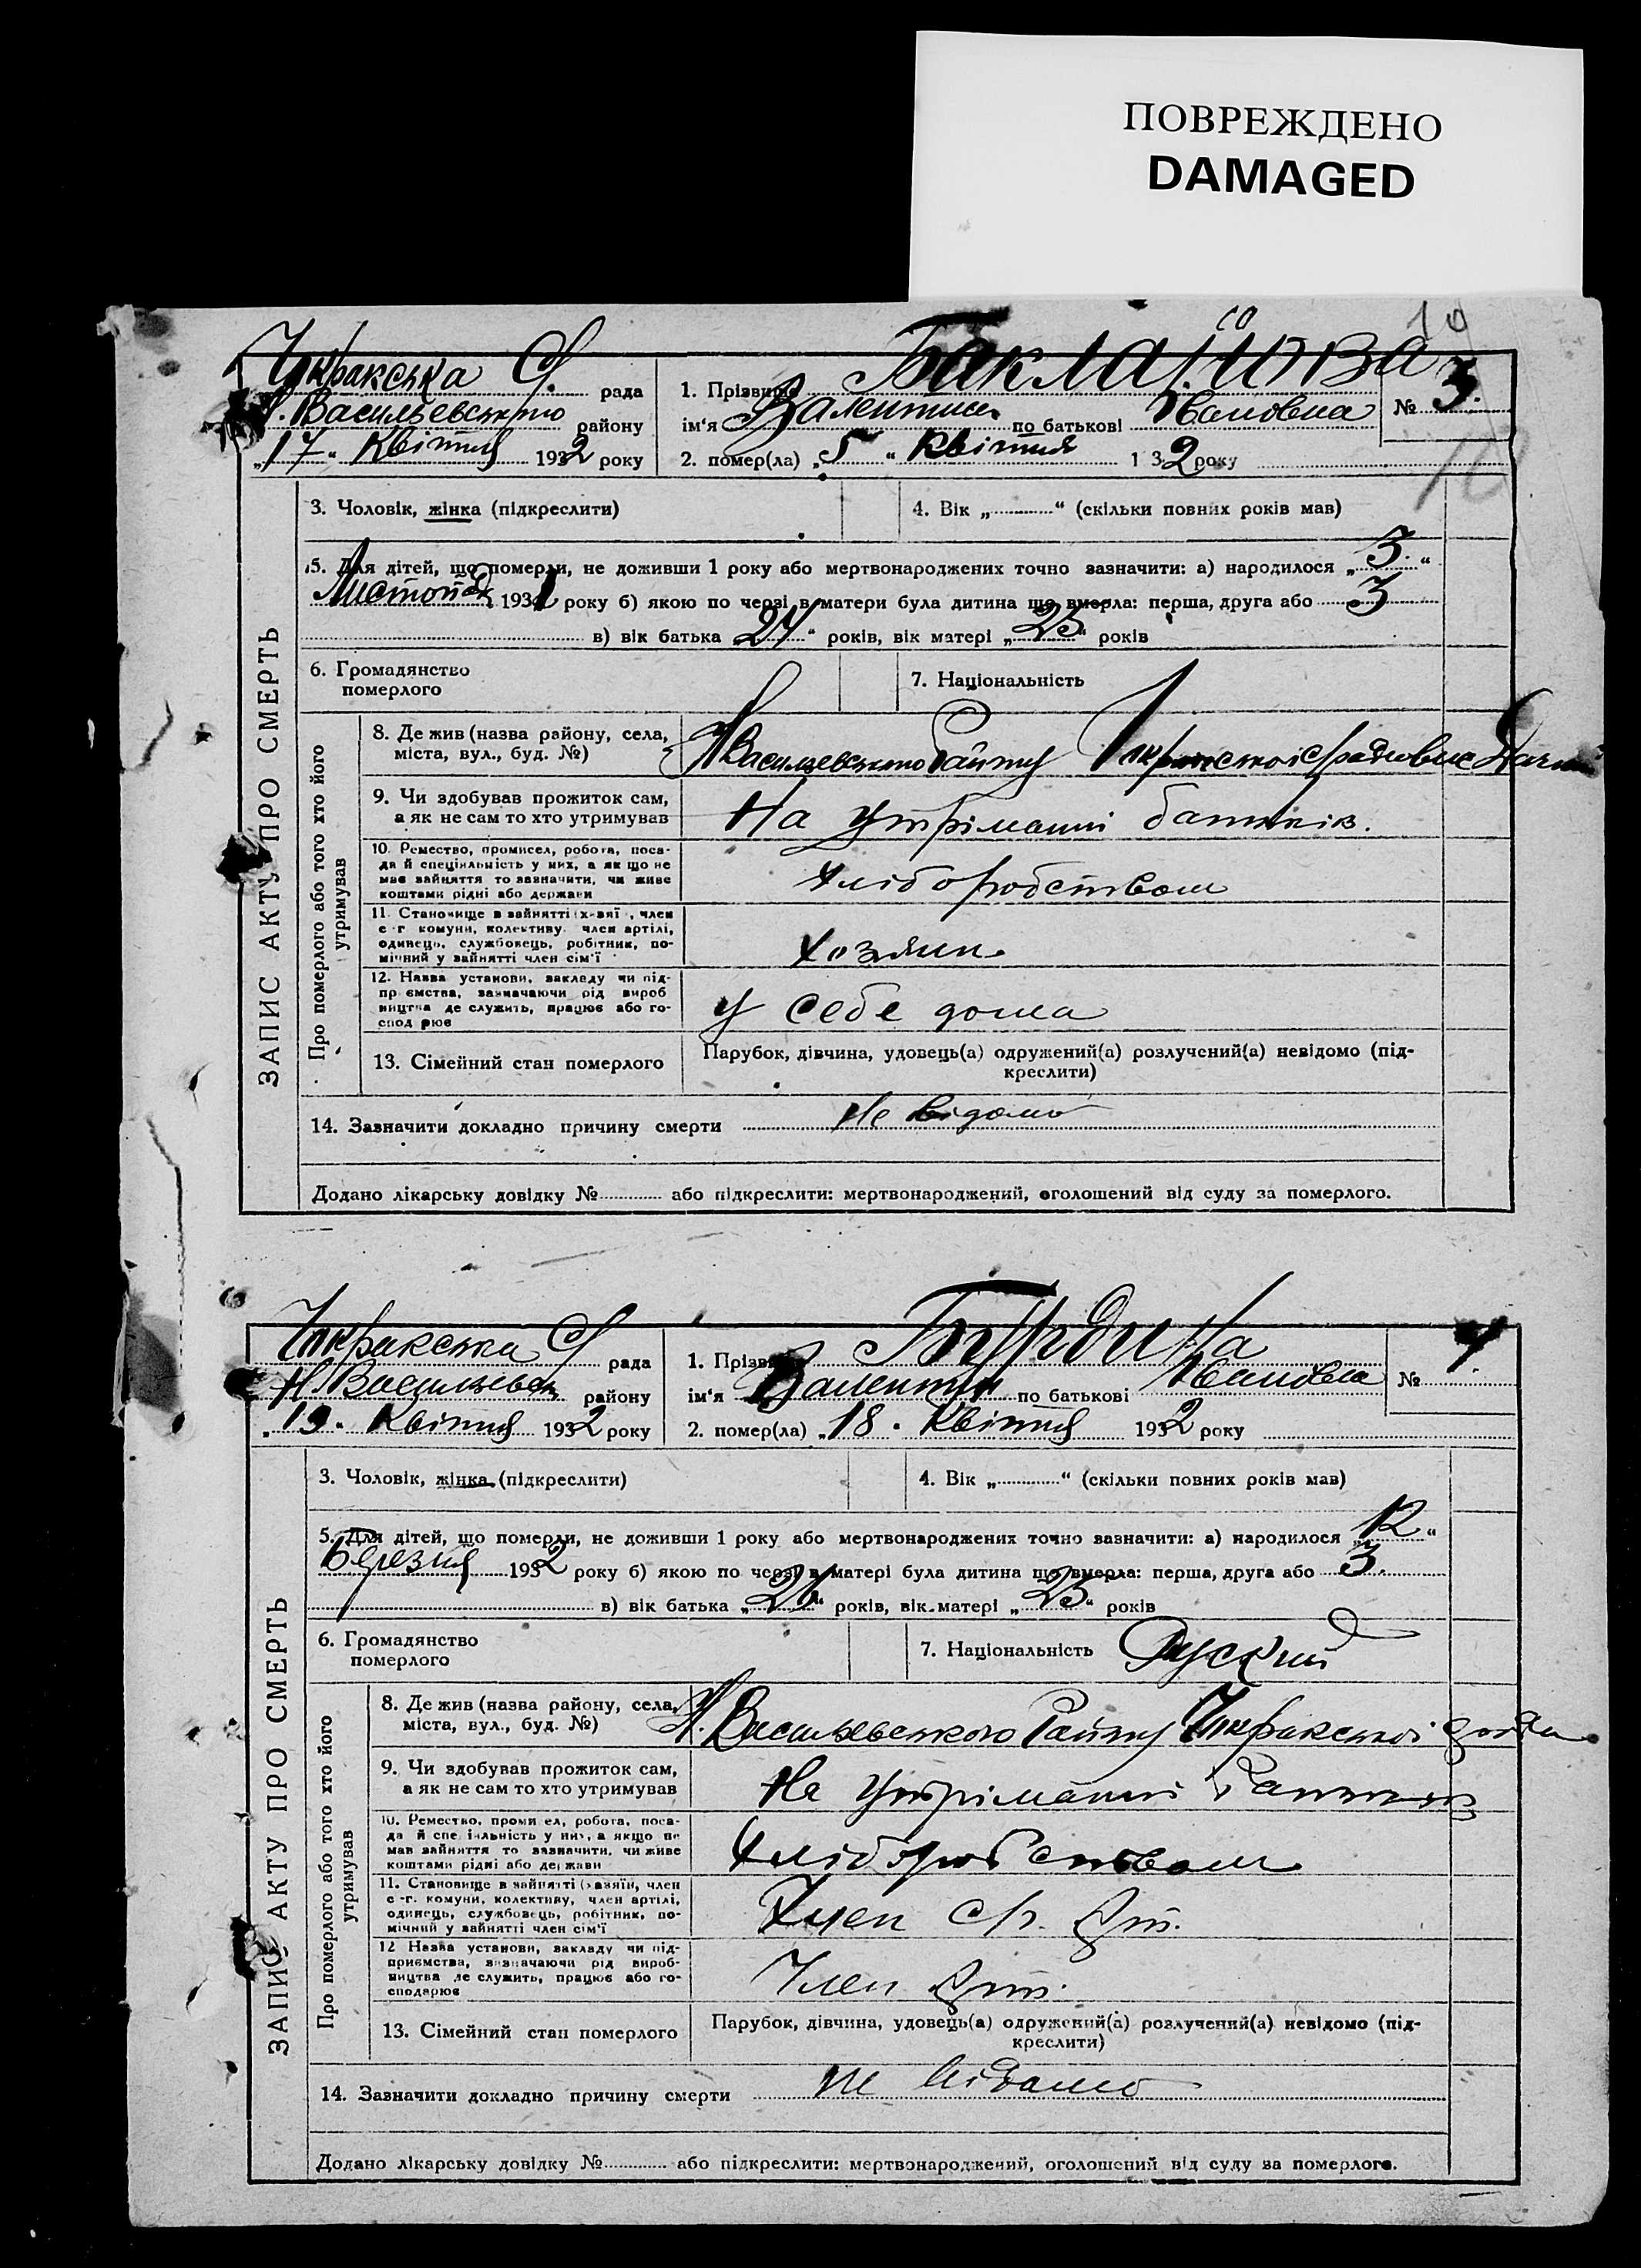 ПОВРЕЖДЕНО
DAMAGED
10
Чкракська С. рада
Н. Васильевського району
„17“ Квітня 1932 року
1. Прізвище Бакланова
№ 3.
ім'я Валентина по батькові Івановна
2. помер(ла) „5“ Квітня 1932 року
ЗАПИС АКТУ ПРО СМЕРТЬ
3. Чоловік, жінка (підкреслити)
4. Вік „............“ (скільки повних років мав)
5. Для дітей, що померли, не доживши 1 року або мертвонароджених точно зазначити: а) народилося „3.“
Листопад 1931 року б) якою по черзі в матери була дитина що вмерла: перша, друга або 3
в) вік батька „27“ років, вік матері „25“ років
6. Громадянство
померлого
7. Національність
Про померлого або того хто його
утримував
8. Де жив (назва району, села,
міста, вул., буд. №)
Н Васильевського Району
9. Чи здобував прожиток сам,
а як не сам то хто утримував
На утріманні батьків.
10. Ремество, промисел, робота, поса-
да й спеціяльність у них, а як що не
мав зайняття то зазначити, чи живе
коштами рідні або держави
Хліборобством
11. Становище в зайнятті (х-зяї , член
с-г комуни, колективу член артілі,
одинець, службовець, робітник, по-
мічний у зайнятті член сім'ї
Хозяин
12. Назва установи, закладу чи під-
приємства, зазначаючи рід вироб
ництва де служить, працює або го-
сподарює
у себе дома
13. Сімейний стан померлого
Парубок, дівчина, удовець(а) одружений(а) розлучений(а) невідомо (під-
креслити)
14. Зазначити докладно причину смерти Не відомо
Додано лікарську довідку №............ або підкреслити: мертвонароджений, оголошений від суду за померлого.
Чкракська С рада
Н Васильевск району
„19“ Квітня 1932 року
1. Прізвище Бурдина
№ 4.
ім'я Валентин по батькові Івановна
2. помер(ла) „18“ Квітня 1932 року
ЗАПИС АКТУ ПРО СМЕРТЬ
3. Чоловік, жінка (підкреслити)
4. Вік „............“ (скільки повних років мав)
5. Для дітей, що померли, не доживши 1 року або мертвонароджених точно зазначити: а) народилося „12“
Березня 1932 року б) якою по черзі в матері була дитина що вмерла: перша, друга або 3.
в) вік батька „26“ років, вік матері „25“ років
6. Громадянство
померлого
7. Національність Руский
Про померлого або того хто його
утримував
8. Де жив (назва району, села,
міста, вул., буд. №)
Н. Васильевського Району Чкракської
9. Чи здобував прожиток сам,
а як не сам то хто утримував
На утріманні Батьків
10. Ремество, промисел, робота, поса-
да й спеціяльність у них, а якщо не
мав зайняття то зазначити, чи живе
коштами рідні або держави
Хліборобством
11. Становище в зайнятті (хазяїн, член
с-г. комуни, колективу, член артілі,
одинець, службовець, робітник, по-
мічний у зайнятті член сім'ї
Член
12 Назва установи, закладу чи під-
приємства, зазначаючи рід вироб-
ництва де служить, працює або го-
сподарює
Член Арт.
13. Сімейний стан померлого
Парубок, дівчина, удовець(а) одружений(а) розлучений(а) невідомо (під-
креслити)
14. Зазначити докладно причину смерти не відомо
Додано лікарську довідку №............ або підкреслити: мертвонароджений, оголошений від суду за померлого.